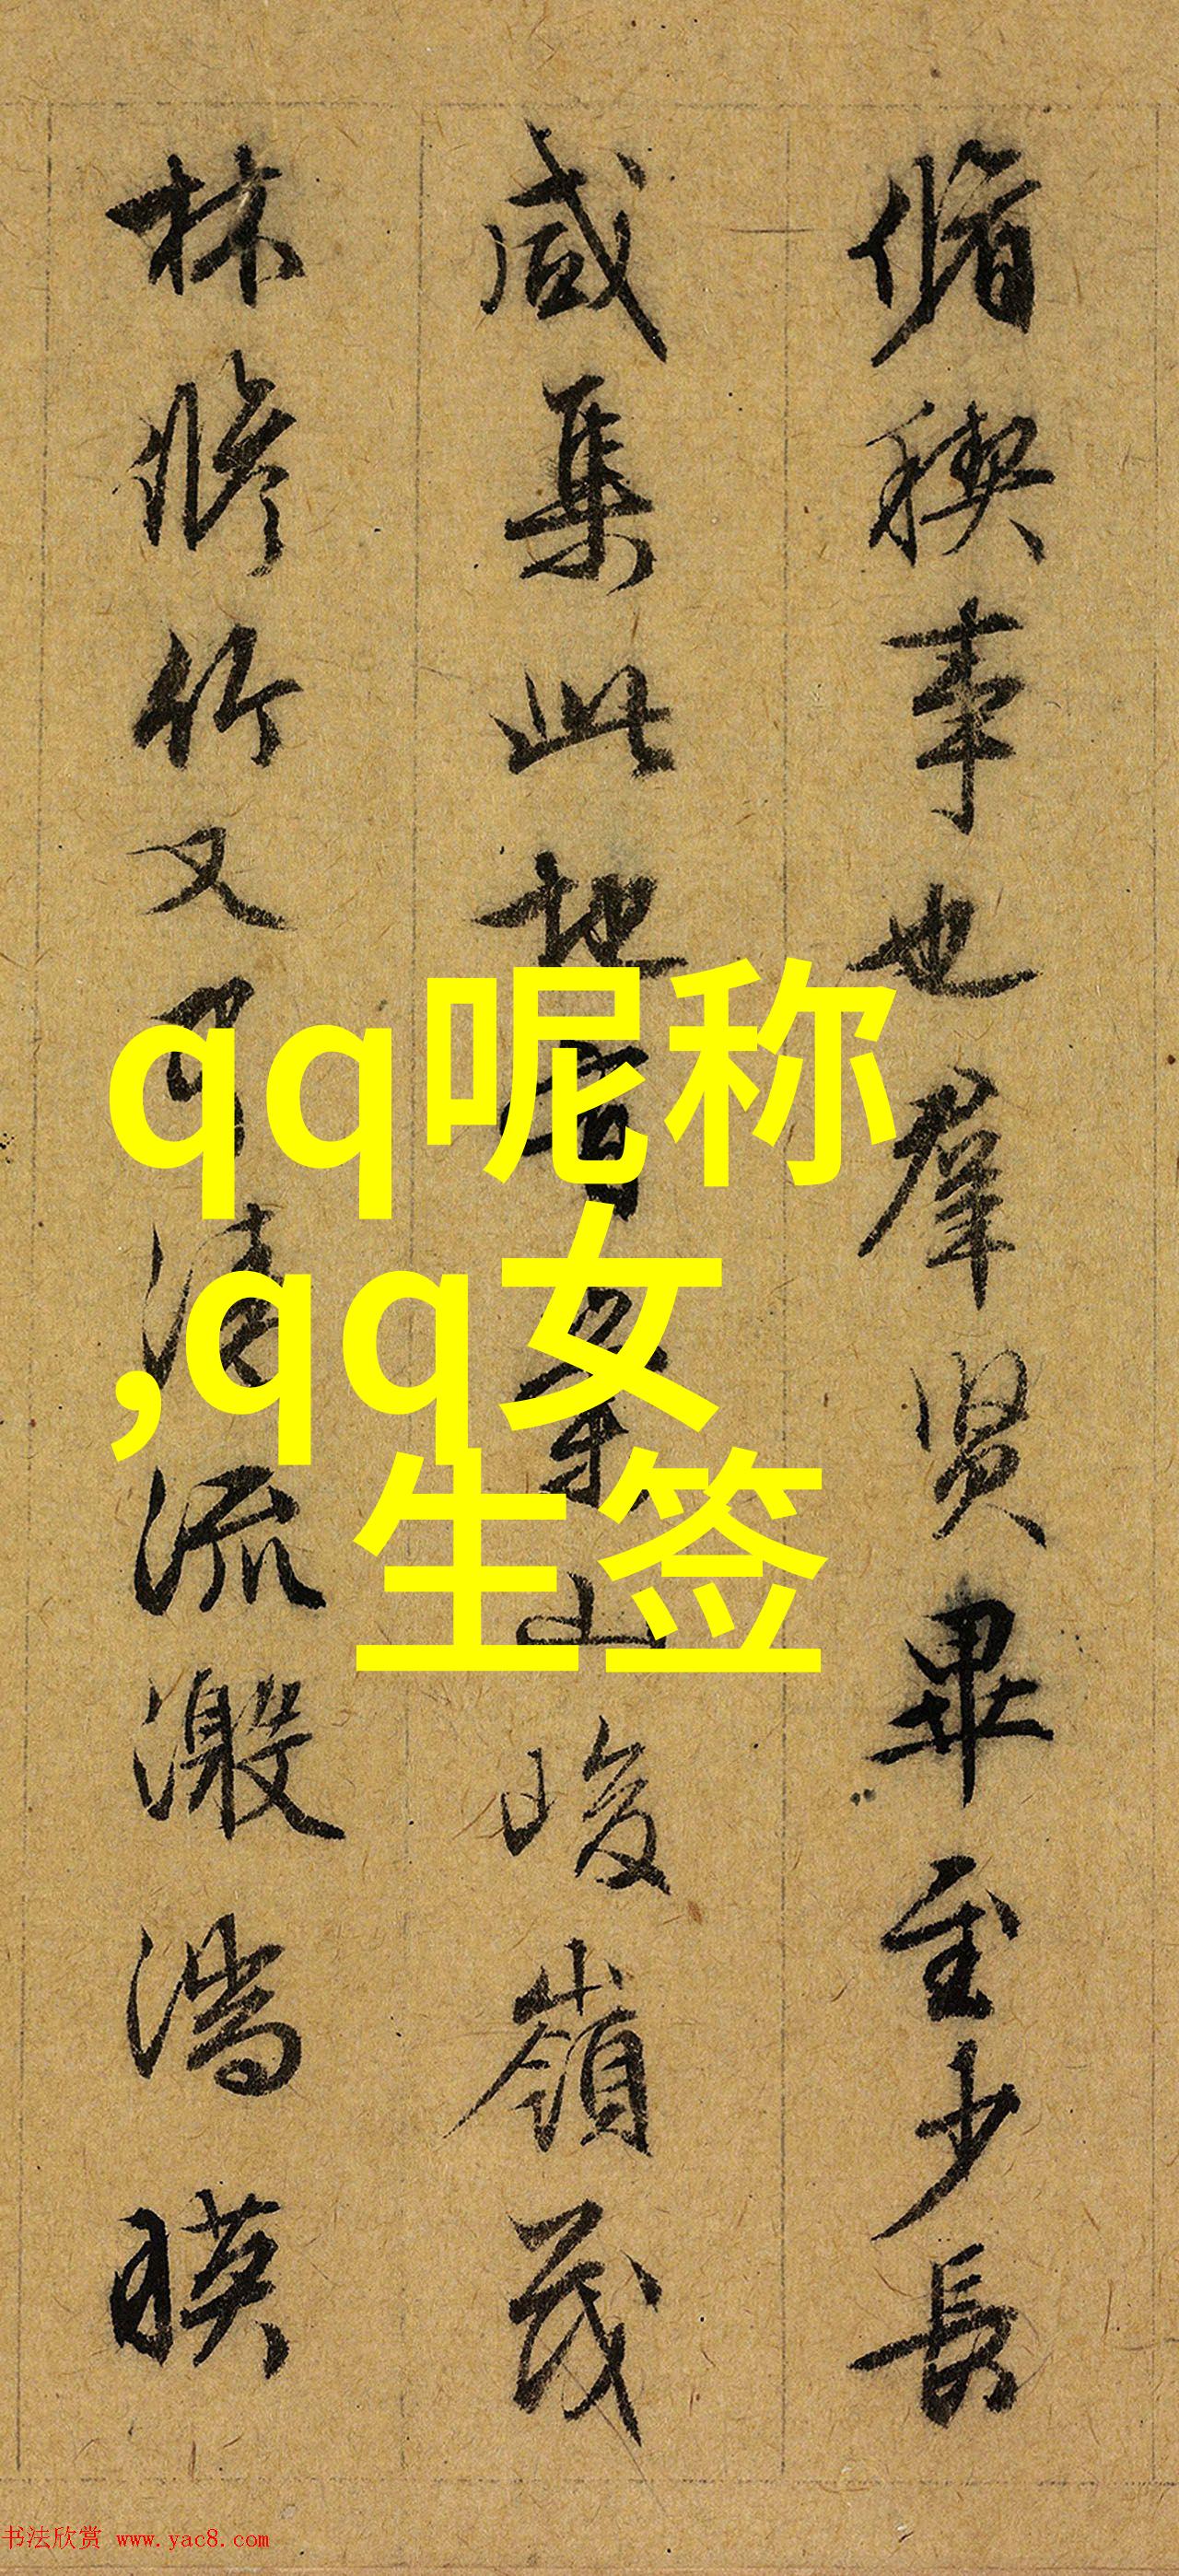 脩稧事也羣贤畢至少長
咸集此地有崇山峻嶺茂
林脩竹又有清流激湍暎
qq呢称
,qq女
生签
书法欣赏 www.yac8.com